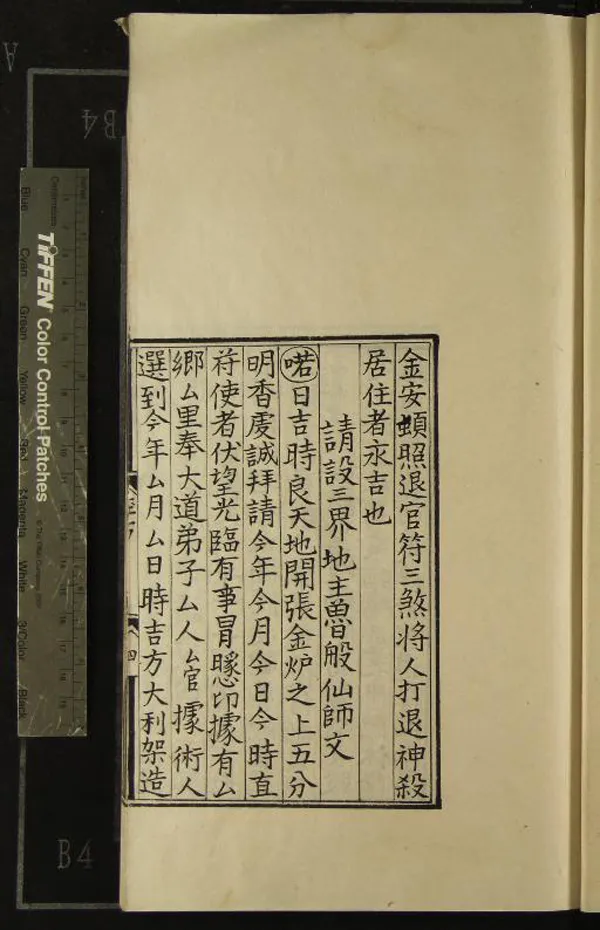 金安頓照退官符三煞將人打退神殺
居住者永吉也
請設三界地主魯般仙師文
喏日吉時良天地開張金炉之上五分
明香虔誠拜請今年今月今日今時直
符使者伏望光臨有事冐懇卬據有厶
鄉厶里奉大道弟子厶人厶官據術人
選到今年厶月厶日時吉方大利架造
四
TIFFEN Color Control Patches
Blue
Cyan
Green
Yellow
Red
Magenta
White
3/Color
Black
B4
B4
A